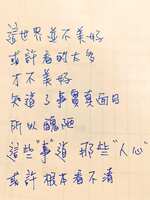 這世界並不美好
或許看的太多
才不美好
知道了事實真面目
所以醜陋
這些"事"道 那些"人心"
或許根本看不清